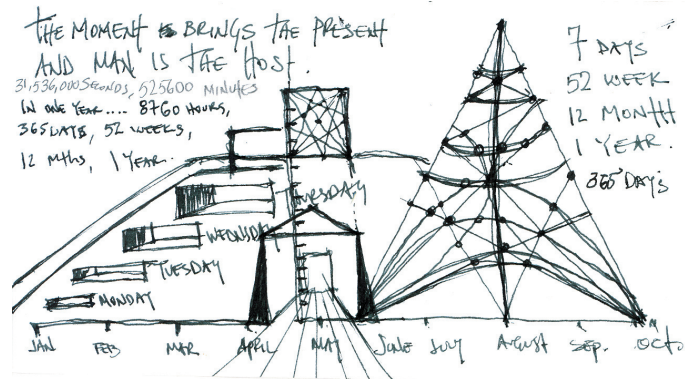 THE MOMENT BRINGS THE PRESENT
AND MAN IS THE HOST.
31,536,000 SECONDS, 525600 MINUTES
IN ONE YEAR.... 8760 HOURS,
365 DAYS, 52 WEEKS,
12 Mths, 1 YEAR.
7 DAYS
52 WEEK
12 MONTH
1 YEAR.
365 DAYS
THURSDAY
WEDNSDAY
TUESDAY
MONDAY
JAN FEB MAR APRIL MAY JUNE JULY AUGUST SEP. OCTO